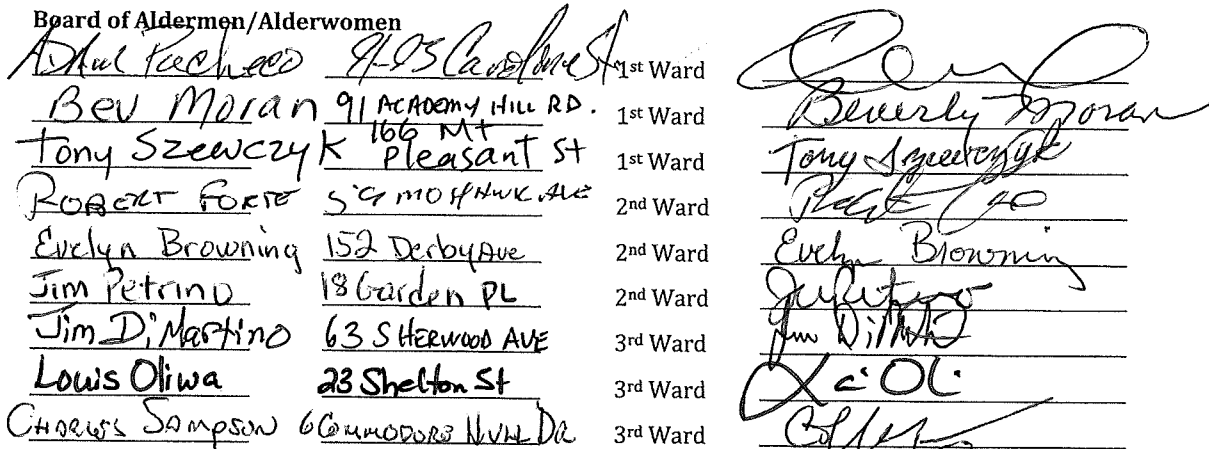 Board of Aldermen/Alderwomen
Pacheco 1st Ward
Bev Moran 91 ACADEMY HILL RD. 1st Ward Beverly Moran
Tony Szewczyk 166 Mt Pleasant St 1st Ward Tony Szewczyk
ROBERT FORTE MOHAWK AVE 2nd Ward
Evelyn Browning 152 Derby Ave 2nd Ward Evelyn Browning
Jim Petrino 18 Garden PL 2nd Ward
Jim DiMartino 63 SHERWOOD AVE 3rd Ward
Louis Oliwa 23 Shelton St 3rd Ward
CHARLES SAMPSON 6 COMMODORE HULL DR 3rd Ward